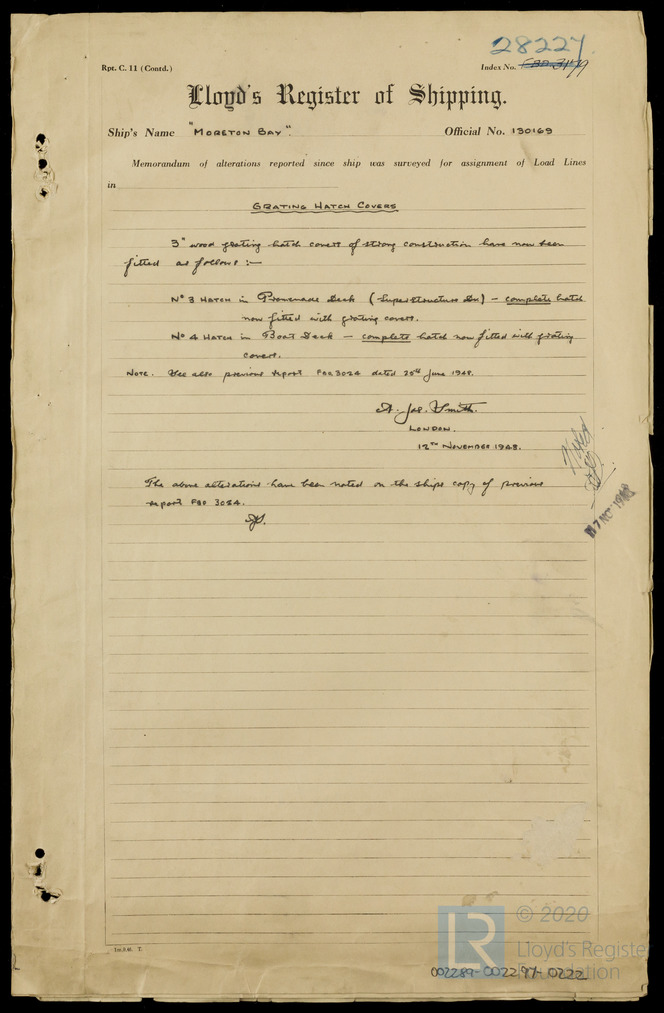 28227
Rpt. C. 11 (Contd.)
Index No.
Lloyd's Register of Shipping.
Ship's Name "MORETON BAY". Official No. 130169
Memorandum of alterations reported since ship was surveyed for assignment of Load Lines
in
GRATING HATCH COVERS
3" wood grating hatch covers of strong construction have now been
fitted as follows :-
No 3 HATCH in Promenade Deck (Superstructure Dk) - complete hatch
now fitted with grating covers.
No 4 HATCH in Boat Deck - complete hatch now fitted with grating
covers.
NOTE. See also previous report FBO 3024 dated 25th June 1948.
A. Jas. Smith.
LONDON.
12TH NOVEMBER 1948.
The above alterations have been noted on the ships copy of previous
report FBO 3024.
Noted
© 2020
LR
Lloyd's Register
Foundation
002289-002297-0222